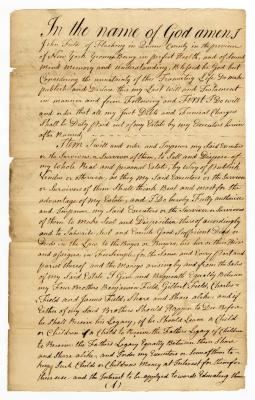 In the name of God amen I
John Field of Flushing in Queens County in the province
of New York Grocer Being in perfect Health, and of sound
mind memory and understanding, Blessed be God but
Considering the uncertainty of this Transitory Life Do make
publish and Declare this my Last will and Testament
in manner and form Following and First I Do will
and order that all my Just Debts and Funeral Charges
Shall be Duly Paid out of my Estate by my Executors herein
after Named
Item I will and order and Impower my Said Executors
or the Survivors or Survivor of them, to Sell and Dispose of
my whole Real and personal Estate, by way of publick
Vendue or otherwise, as they my Said Executors or the Survivors
or Survivor of them Shall think Best and most for the
advantage of my Estate, and I Do hereby Fully authorise
and Impower my Said Executors or the Survivors or Survivor
of them To make Sale and Disposition thereof accordingly
and to Subscribe Seal and Execute Good Sufficient Deed or
Deeds in the Law to the Buyer or Buyers, his her or their Heirs
and assigns in Fee Simple, for the Same and Every Part and
parcel thereof, and the Moneys Arising by and from the Sales
of my said Estate I Give and Bequeath Equally Between
my Four Brothers Benjamin Field, Gilbert Field, Charles
Field and James Field, Share and Share alike, and if
Either of my Said Brothers Should Happen to Die Before
he Shall Receive his Legacy, if he Should Leave a Child
or Children a Child to Receive the Fathers Legacy if Children
to Receive the Fathers Legacy Equally Between them Share
and Share alike, and order my Executors or Some of them to
keep Such Child or Childrens Money at Interest for their
use, and the Interest to be applyed towards Educating them
(1)